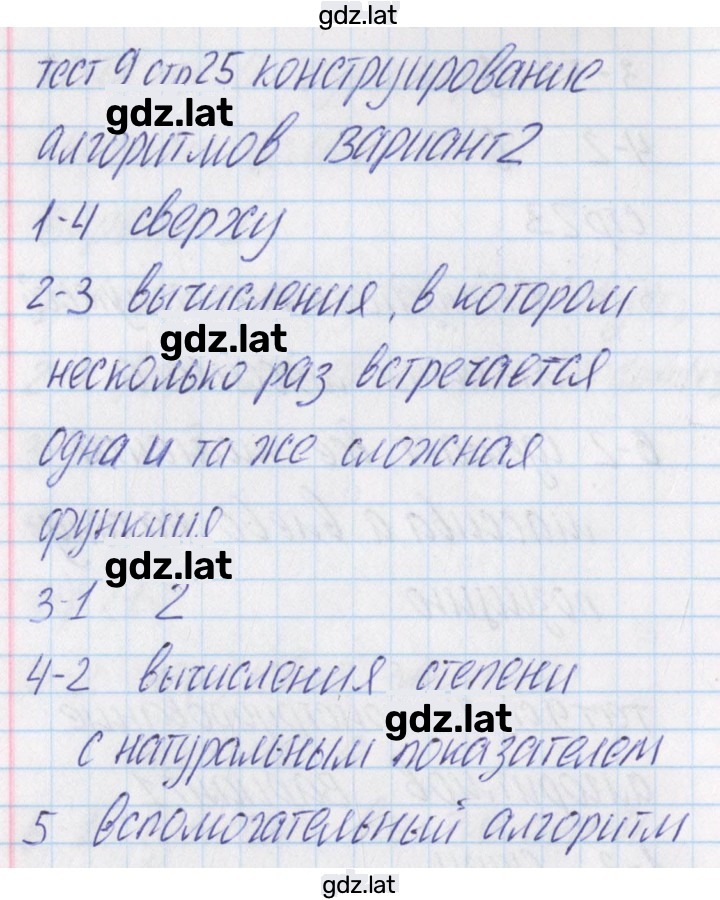 gdz.lat
тест 9 стр25 конструирование
gdz.lat
алгоритмов вариант 2
1-4 сверху
2-3 вычисления, в котором
gdz.lat
несколько раз встречается
одна и та же сложная
функция
gdz.lat
3-1 2
4-2 вычисления степени
gdz.lat
с натуральным показателем
5 вспомогательный алгоритм
gdz.lat